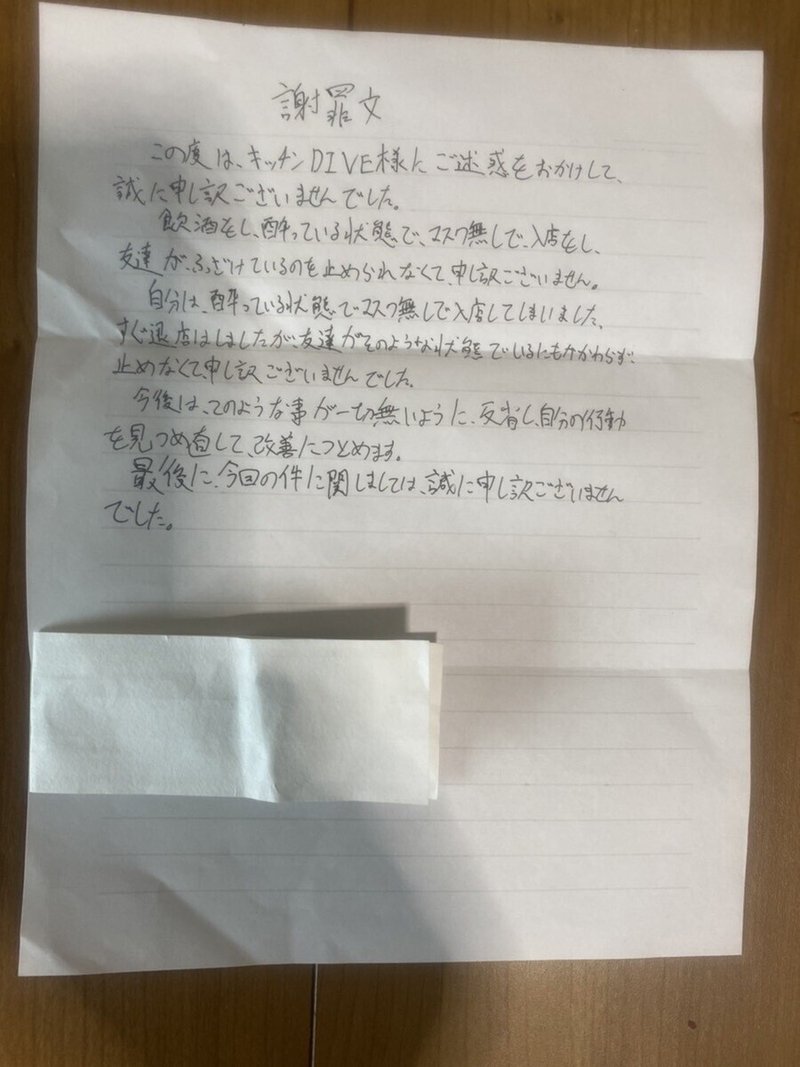 謝罪文
この度は、キッチンDIVE様にご迷惑をおかけして、
誠に申し訳ございませんでした。
飲酒をし、酔っている状態で、マスク無しで、入店をし、
友達が、ふざけているのを止められなくて、申し訳ございません。
自分は、酔っている状態でマスク無しで入店してしまいました、
すぐ退店はしましたが、友達がそのような状態でいるにもかかわらず、
止めなくて、申し訳ございませんでした。
今後は、このような事が一切無いように、反省し、自分の行動
を見つめ直して、改善につとめます。
最後に、今回の件に関しましては、誠に申し訳ございません
でした。